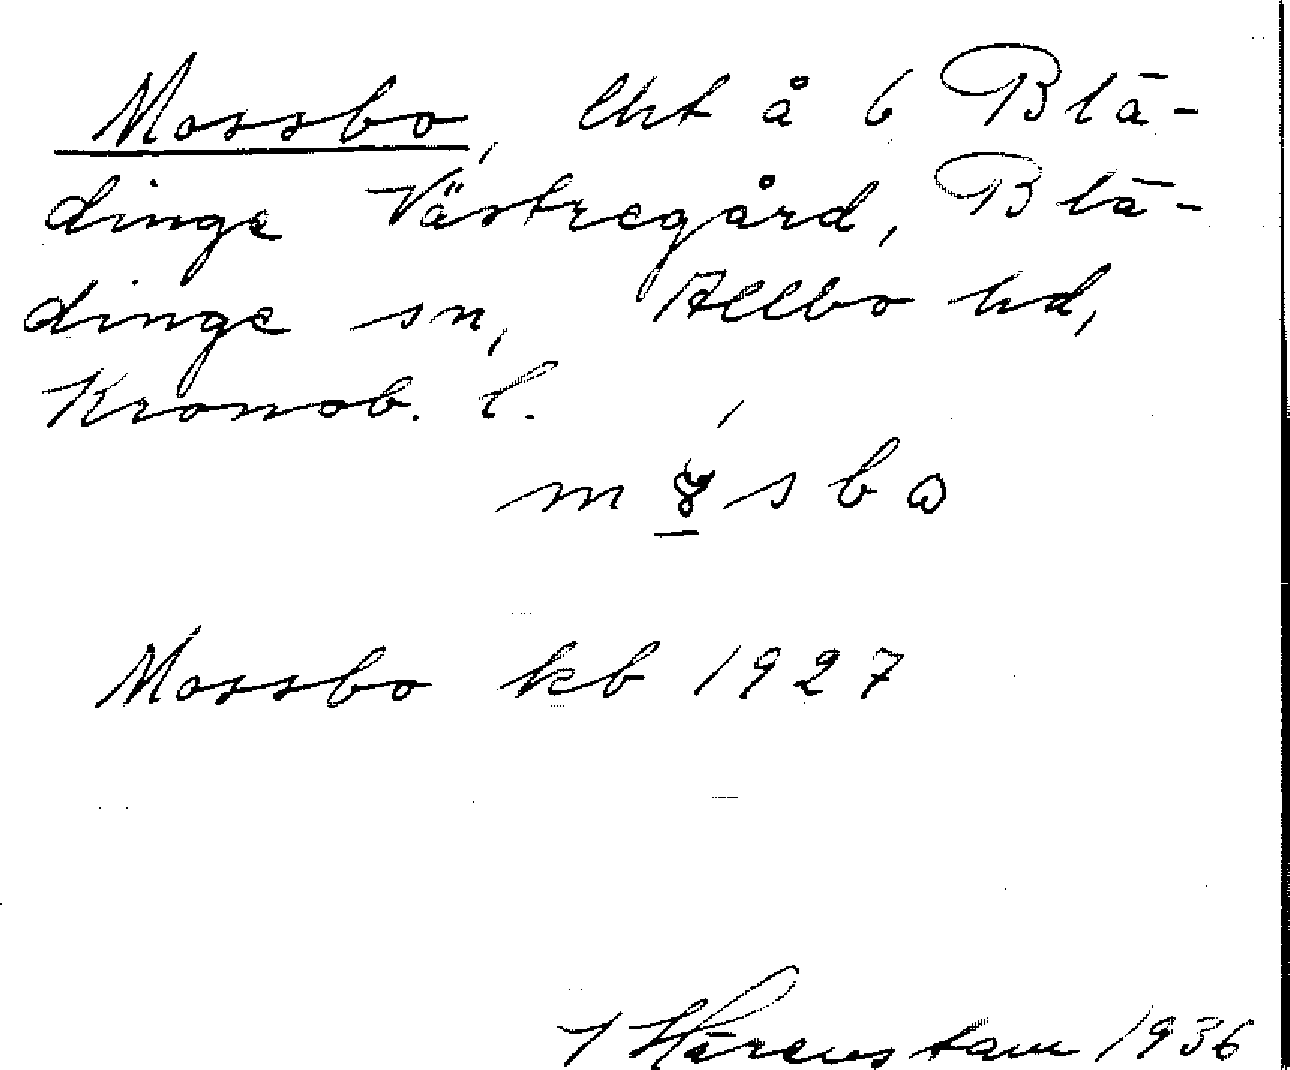 Mossbo, lht å 6 Blä-
dinge Västregård, Blä-
dinge sn, Allbo hd,
Kronob. l.
Mossbo kb 1927
Härenstam 1936